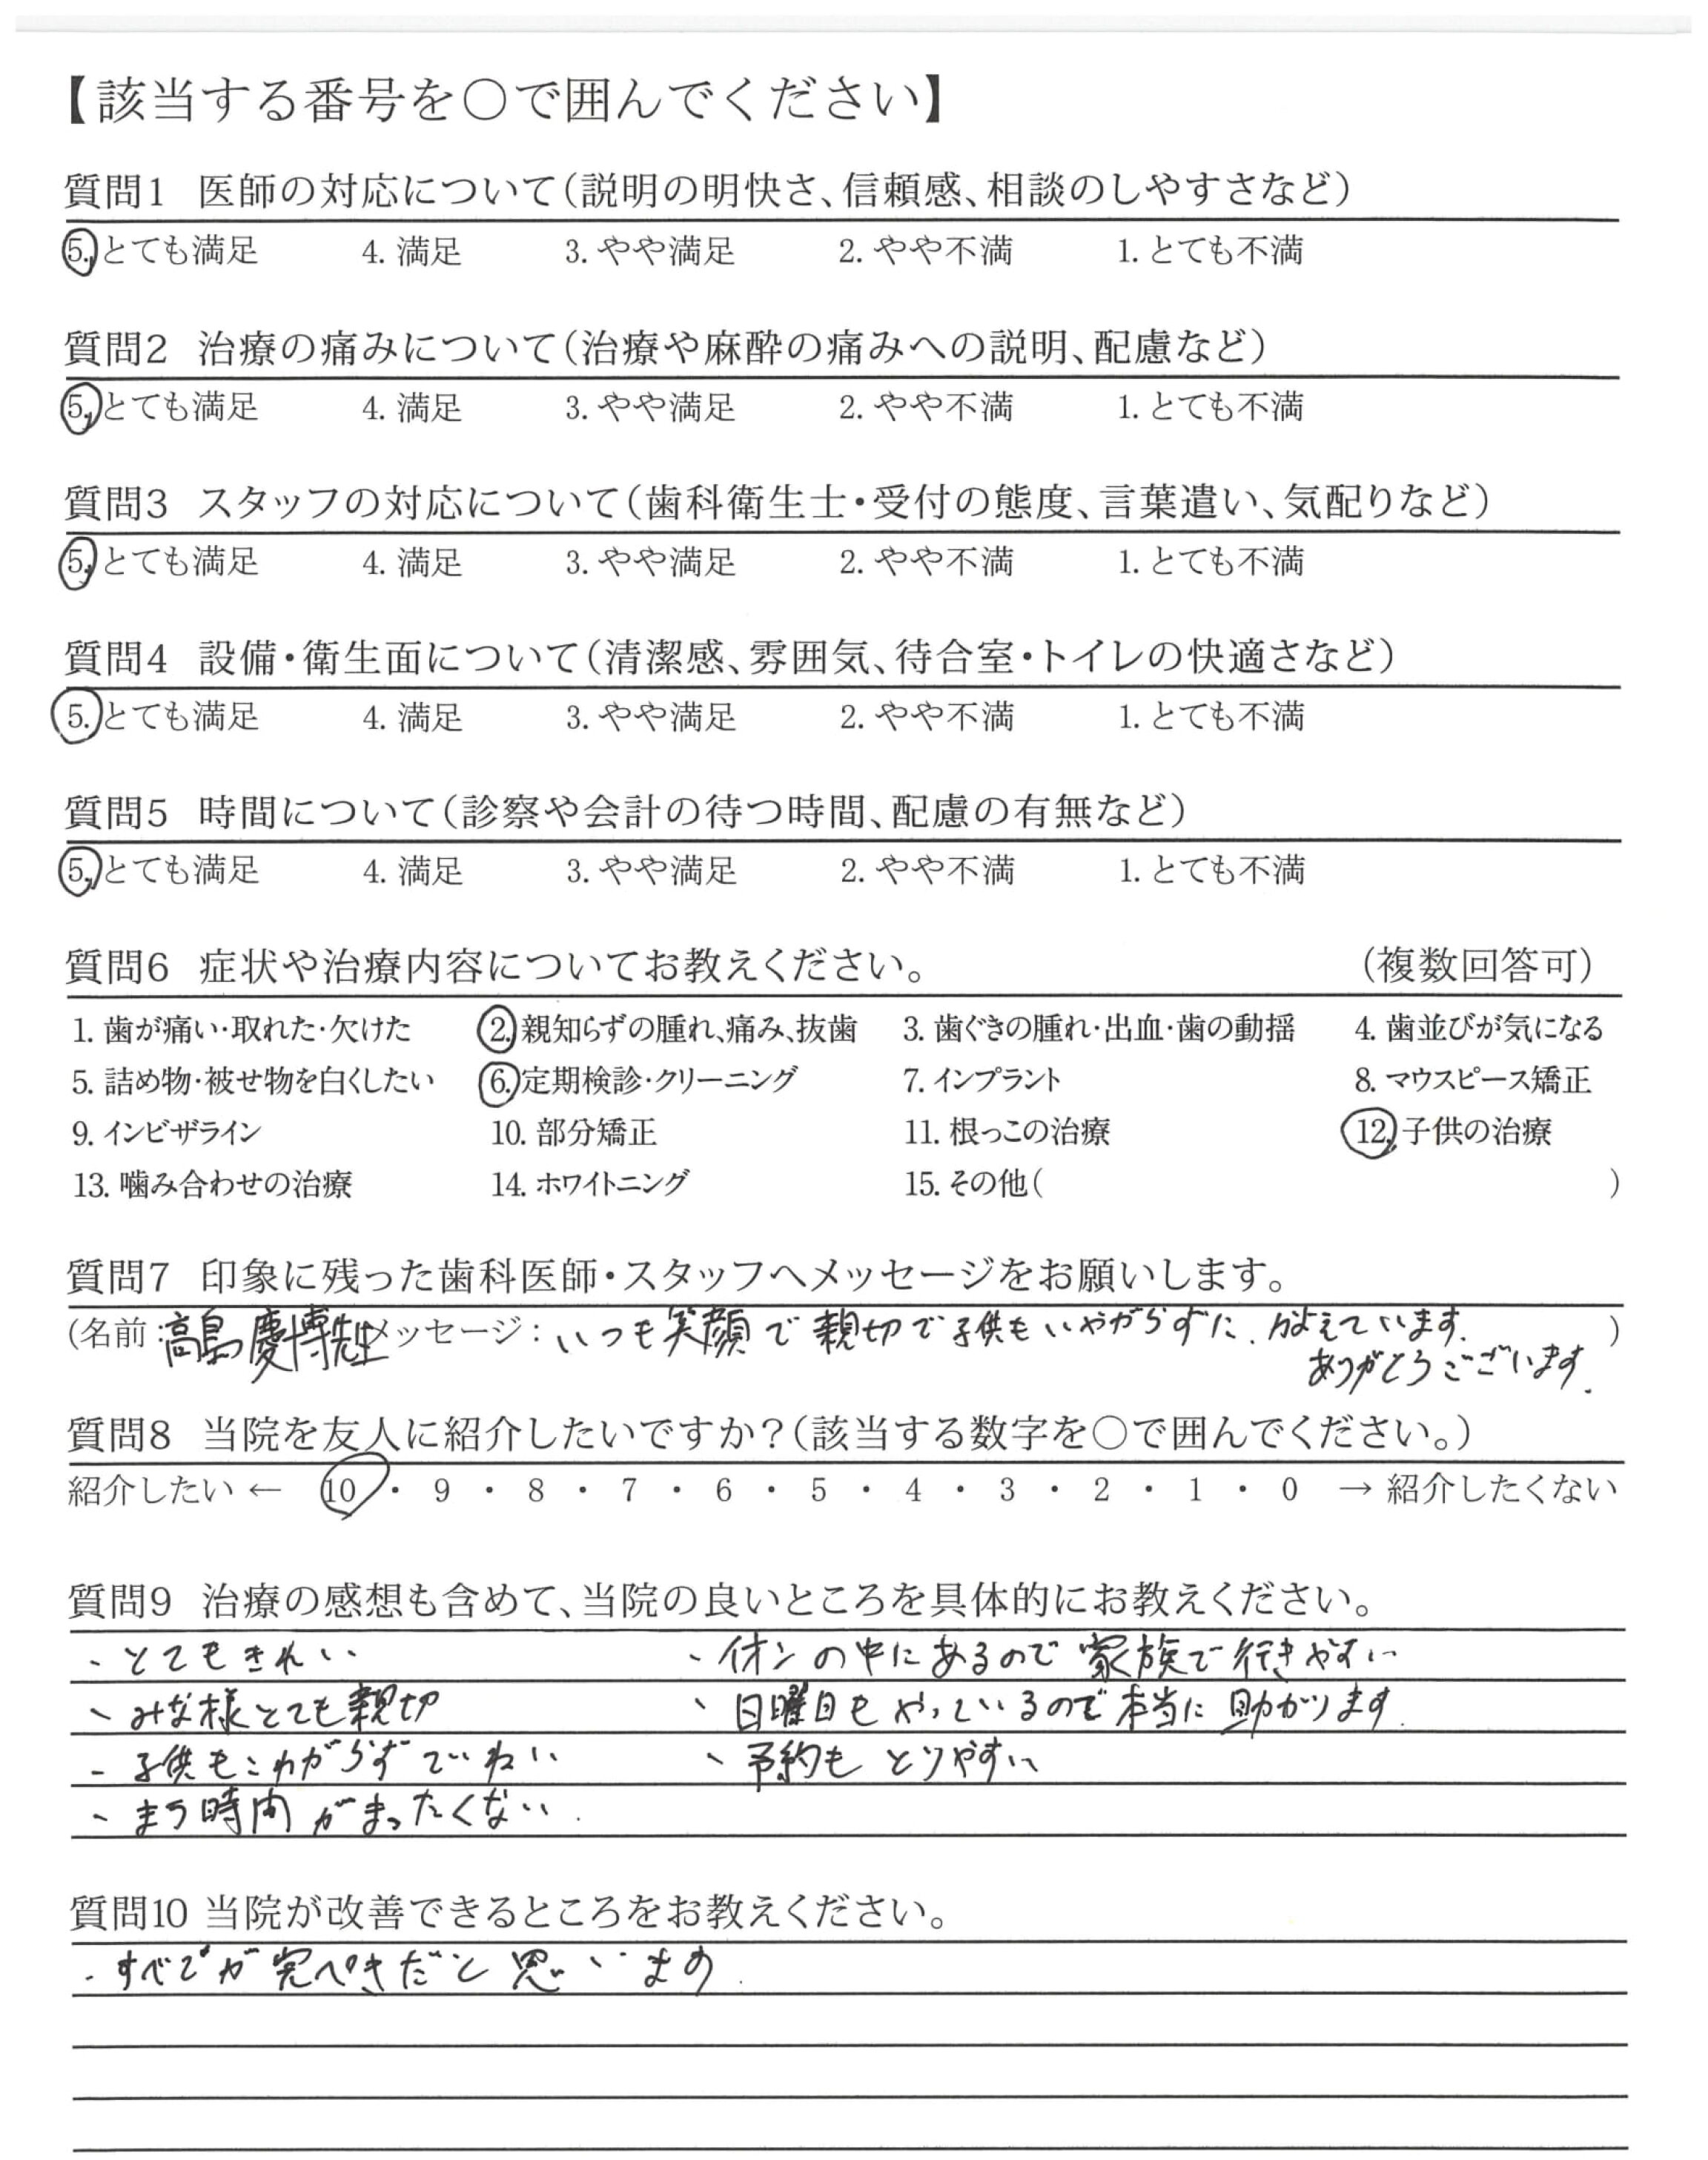 【該当する番号を○で囲んでください】
質問1 医師の対応について(説明の明快さ、信頼感、相談のしやすさなど)
5. とても満足 4. 満足 3. やや満足 2. やや不満 1. とても不満
質問2 治療の痛みについて(治療や麻酔の痛みへの説明、配慮など)
5. とても満足 4. 満足 3. やや満足 2. やや不満 1. とても不満
質問3 スタッフの対応について(歯科衛生士・受付の態度、言葉遣い、気配りなど)
5. とても満足 4. 満足 3. やや満足 2. やや不満 1. とても不満
質問4 設備・衛生面について(清潔感、雰囲気、待合室・トイレの快適さなど)
5. とても満足 4. 満足 3. やや満足 2. やや不満 1. とても不満
質問5 時間について(診察や会計の待つ時間、配慮の有無など)
5. とても満足 4. 満足 3. やや満足 2. やや不満 1. とても不満
質問6 症状や治療内容についてお教えください。 (複数回答可)
1. 歯が痛い・取れた・欠けた 2. 親知らずの腫れ、痛み、抜歯 3. 歯ぐきの腫れ・出血・歯の動揺 4. 歯並びが気になる
5. 詰め物・被せ物を白くしたい 6. 定期検診・クリーニング 7. インプラント 8. マウスピース矯正
9. インビザライン 10. 部分矯正 11. 根っこの治療 12. 子供の治療
13. 噛み合わせの治療 14. ホワイトニング 15. その他( )
質問7 印象に残った歯科医師・スタッフへメッセージをお願いします。
(名前:高島慶博先生 メッセージ:いつも笑顔で親切で子供もいやがらずに、かよえています. )
ありがとうございます.
質問8 当院を友人に紹介したいですか?(該当する数字を○で囲んでください。)
紹介したい ← 10 ・ 9 ・ 8 ・ 7 ・ 6 ・ 5 ・ 4 ・ 3 ・ 2 ・ 1 ・ 0 → 紹介したくない
質問9 治療の感想も含めて、当院の良いところを具体的にお教えください。
・とてもきれい ・イオンの中にあるので家族で行きやすい
・みな様とても親切 ・日曜日もやっているので本当に助かります.
・子供もこわがらずていねい ・予約もとりやすい
・まつ時間がまったくない.
質問10 当院が改善できるところをお教えください。
・すべてが完ぺきだと思います.